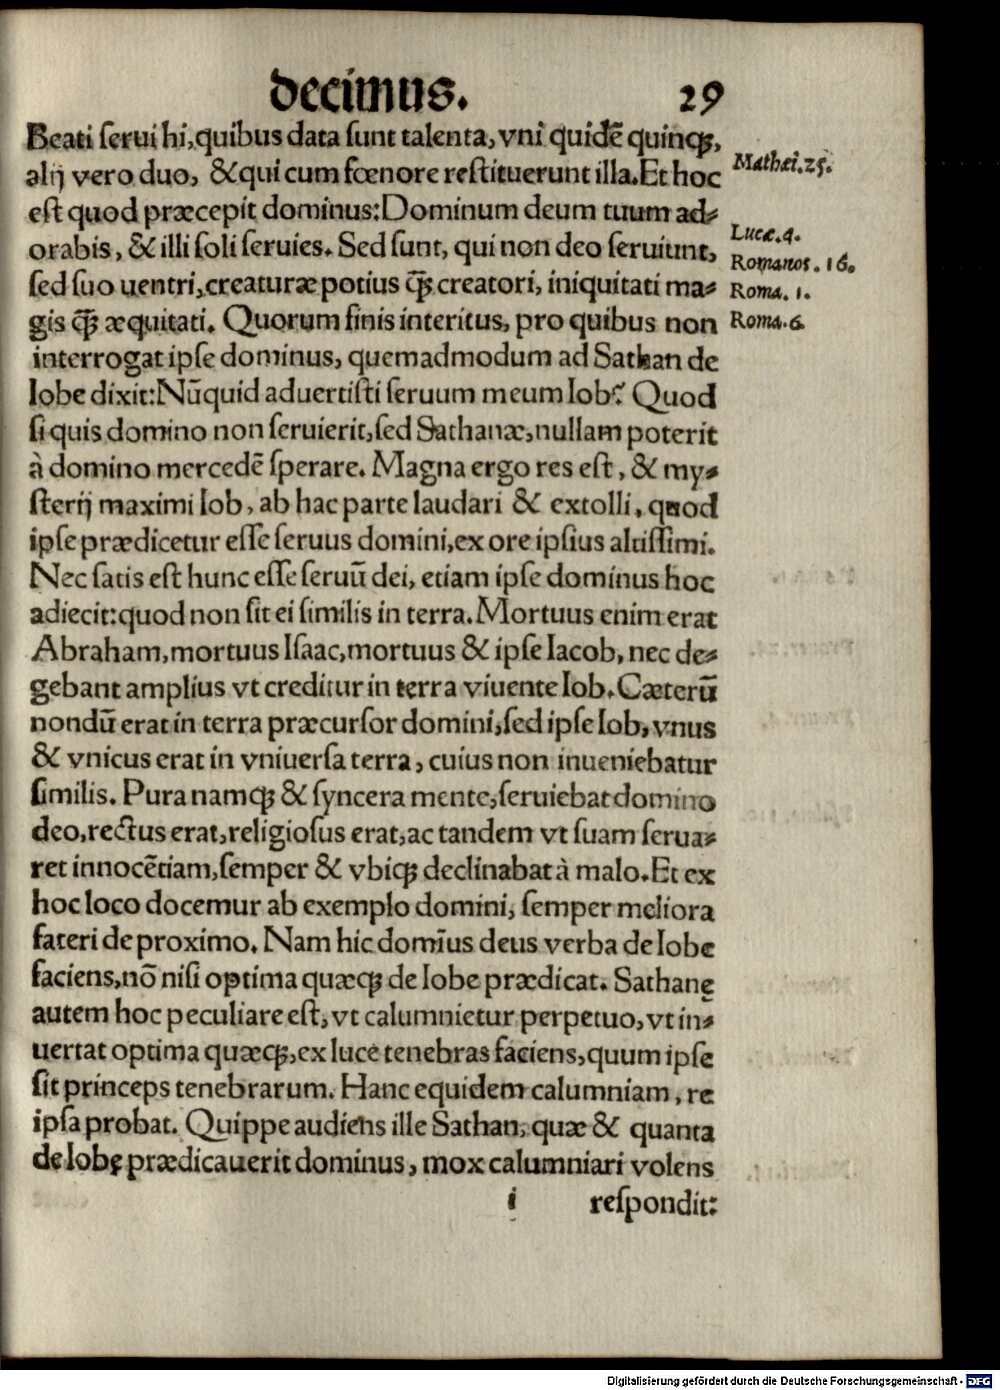 decimus. 29
Beati ſerui hi, quibus data ſunt talenta, vni quidē quinqꝫ,
Mathæi. 25.
alij vero duo, & qui cum fœnore reſtituerunt illa. Et hoc
eſt quod præcepit dominus: Dominum deum tuum ad⸗
Lucæ. 4.
orabis, & illi ſoli ſeruies. Sed ſunt, qui non deo ſeruiunt,
Romanos. 16.
ſed ſuo uentri, creaturæ potius q̃ꝫ creatori, iniquitati ma⸗
Roma. 1.
gis q̃ꝫ æquitati. Quorum finis interitus, pro quibus non
Roma. 6.
interrogat ipſe dominus, quemadmodum ad Sathan de
Iobe dixit: Nūquid aduertiſti ſeruum meum Iob? Quod
ſi quis domino non ſeruierit, ſed Sathanæ, nullam poterit
à domino mercedē ſperare. Magna ergo res eſt, & my⸗
ſterij maximi Iob, ab hac parte laudari & extolli, quod
ipſe prædicetur eſſe ſeruus domini, ex ore ipſius altiſſimi.
Nec ſatis eſt hunc eſſe ſeruū dei, etiam ipſe dominus hoc
adiecit: quod non ſit ei ſimilis in terra. Mortuus enim erat
Abraham, mortuus Iſaac, mortuus & ipſe Iacob, nec de⸗
gebant amplius vt creditur in terra viuente Iob. Cæterū
nondū erat in terra præcurſor domini, ſed ipſe Iob, vnus
& vnicus erat in vniuerſa terra, cuius non inueniebatur
ſimilis. Pura namqꝫ & ſyncera mente, ſeruiebat domino
deo, rectus erat, religioſus erat, ac tandem vt ſuam ſerua⸗
ret innocētiam, ſemper & vbiqꝫ declinabat à malo. Et ex
hoc loco docemur ab exemplo domini, ſemper meliora
fateri de proximo. Nam hic domīus deus verba de Iobe
faciens, nō niſi optima quæqꝫ de Iobe prædicat. Sathanę
autem hoc peculiare eſt, vt calumnietur perpetuo, vt in⸗
uertat optima quæqꝫ, ex luce tenebras faciens, quum ipſe
ſit princeps tenebrarum. Hanc equidem calumniam, re
ipſa probat. Quippe audiens ille Sathan, quæ & quanta
de Iobe prædicauerit dominus, mox calumniari volens
i reſpondit:
Digitalisierung gefördert durch die Deutsche Forschungsgemeinschaft - DFG